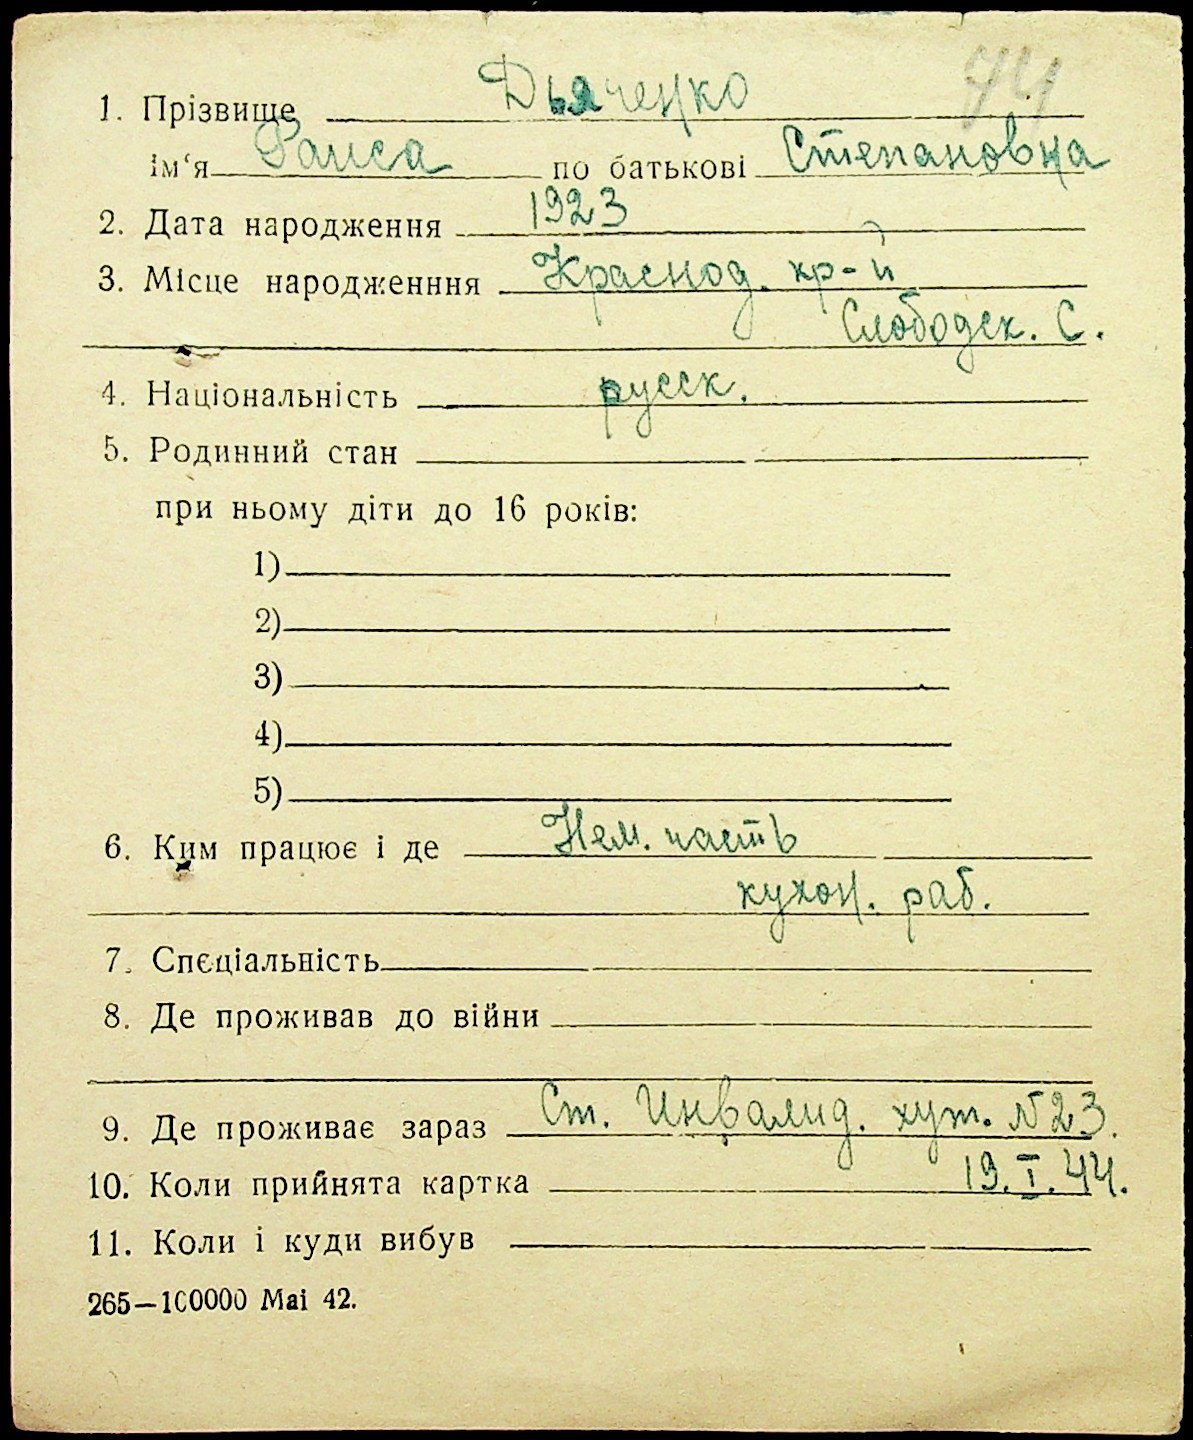 74
1. Прізвище Дьяченко
ім‘я Раиса по батькові Степановна
2. Дата народження 1923
3. Місце народженння Краснод. кр-й
Слободск. С.
4. Національність русск.
5. Родинний стан
при ньому діти до 16 років:
1)
2)
3)
4)
5)
6. Ким працює і де Нем. часть
кухон. раб.
7. Спеціальність
8. Де проживав до війни
9. Де проживає зараз Ст. Инвалид. хут. №23.
10. Коли прийнята картка 19.I.44.
11. Коли і куди вибув
265—100000 Mai 42.